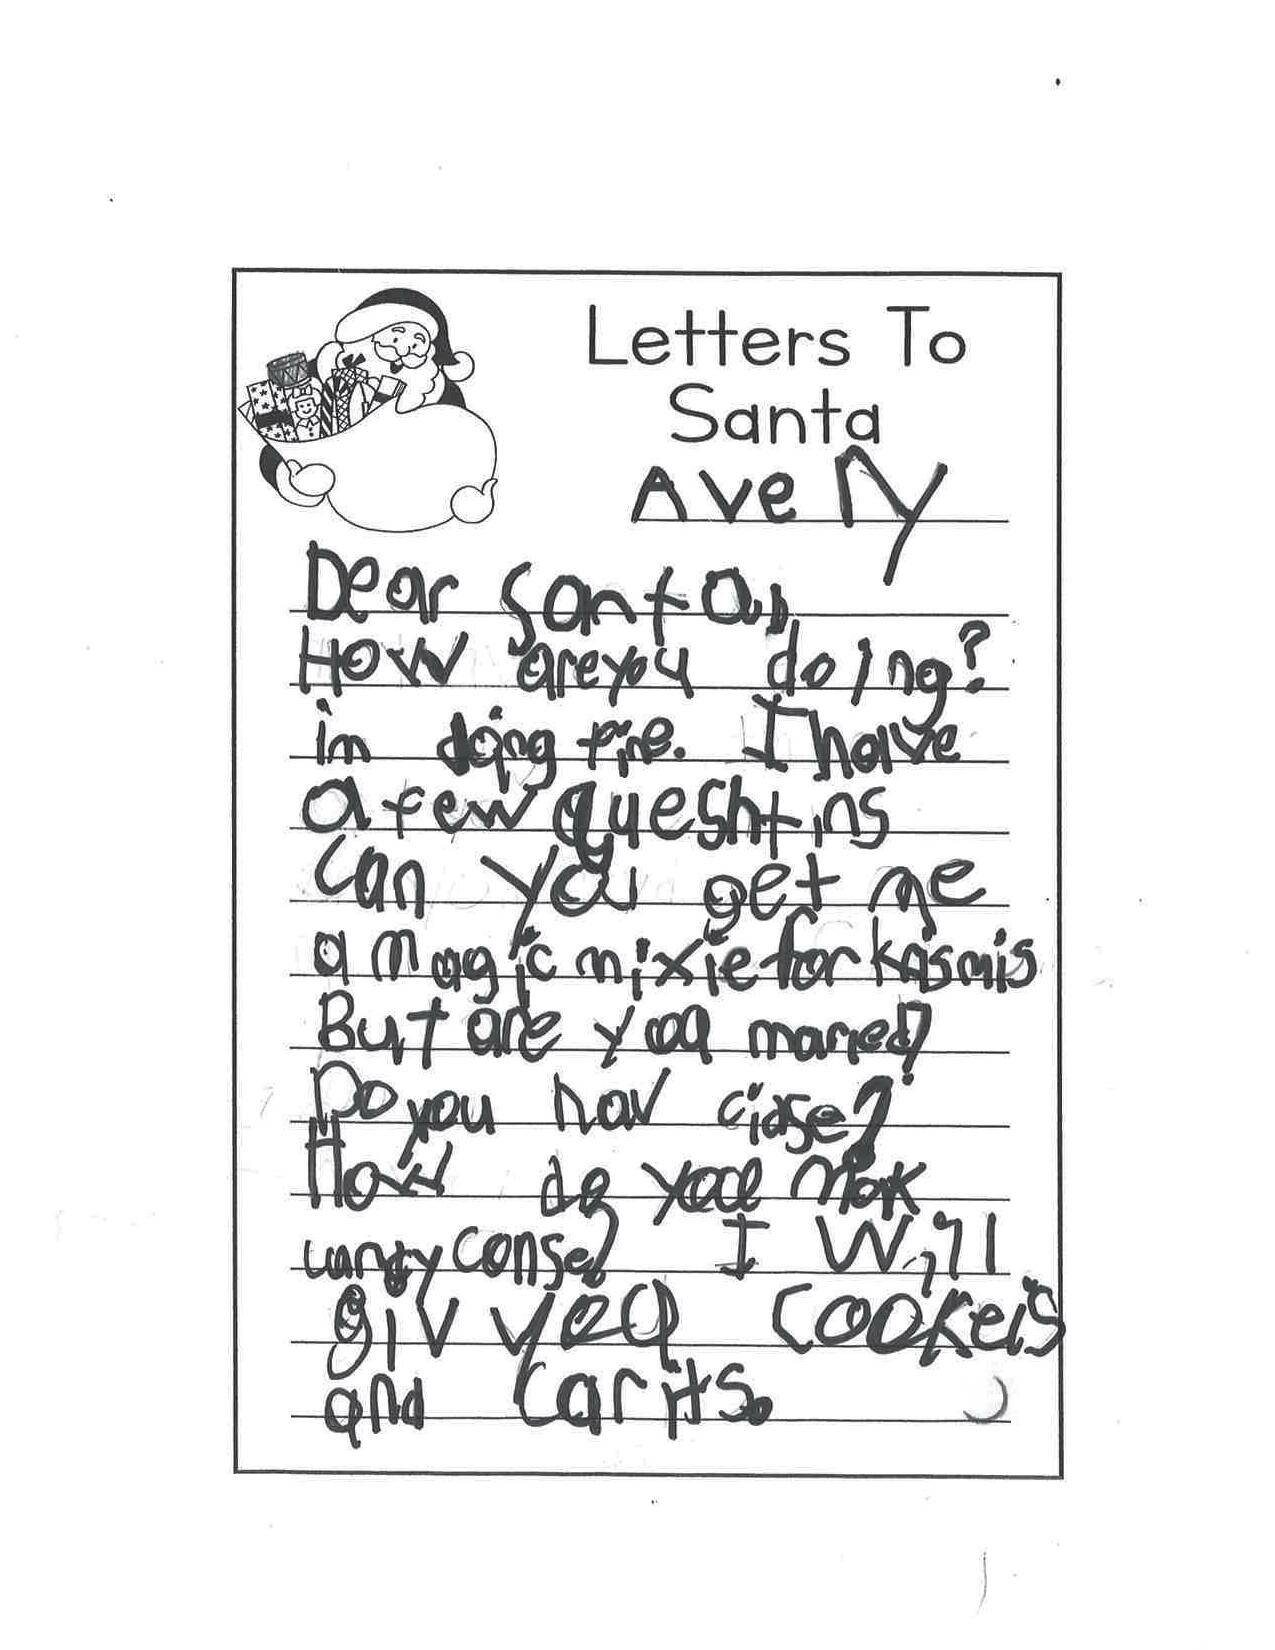 Letters To
Santa
Avery
Dear Santa,
How are you doing?
im doing fine. I have
a few queshtins
Can you get me
a magic mixie for krismis
But are you maried?
Do you hav
How do you mak
candy
I will
giv you cookeis
and carits.